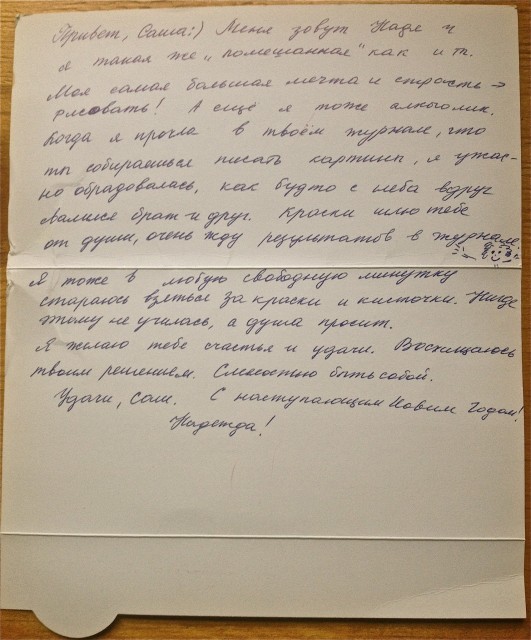 Привет, Саша:) Меня зовут Надя и
я такая же „помешанная" как и т.
Моя самая большая мечта и страсть →
рисовать! А ещё я тоже алкоголик.
Когда я прочла в твоём журнале, что
ты собираешься писать картины, я ужас-
но обрадовалась, как будто с неба вдруг
свалился брат и друг. Краски шлю тебе
от души, очень жду результатов в журнале
Я тоже в любую свободную минутку
стараюсь взяться за краски и кисточки. Нигде
этому не училась, а душа просит.
Я желаю тебе счастья и удачи. Восхищаюсь
твоим решением. Смелостью быть собой.
Удачи, Саш. С наступающим Новым Годом!
Надежда!